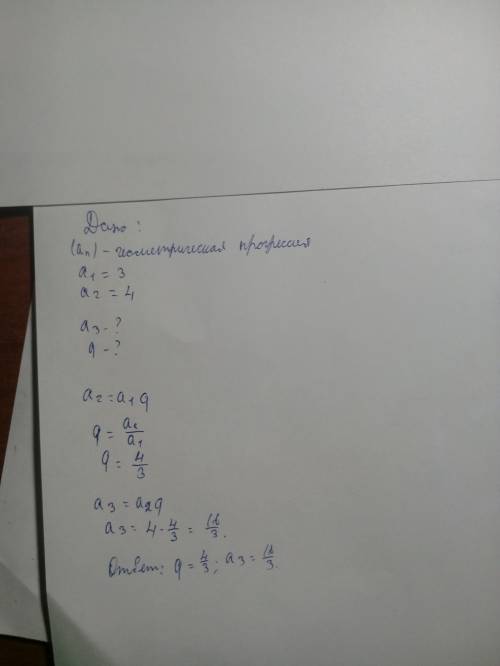 Дано:
(aₙ) - геометрическая прогрессия
a₁ = 3
a₂ = 4
a₃ - ?
q - ?
a₂ = a₁ q
q = a₂/a₁
q = 4/3
a₃ = a₂q
a₃ = 4 · 4/3 = 16/3.
Ответ: q = 4/3; a₃ = 16/3.